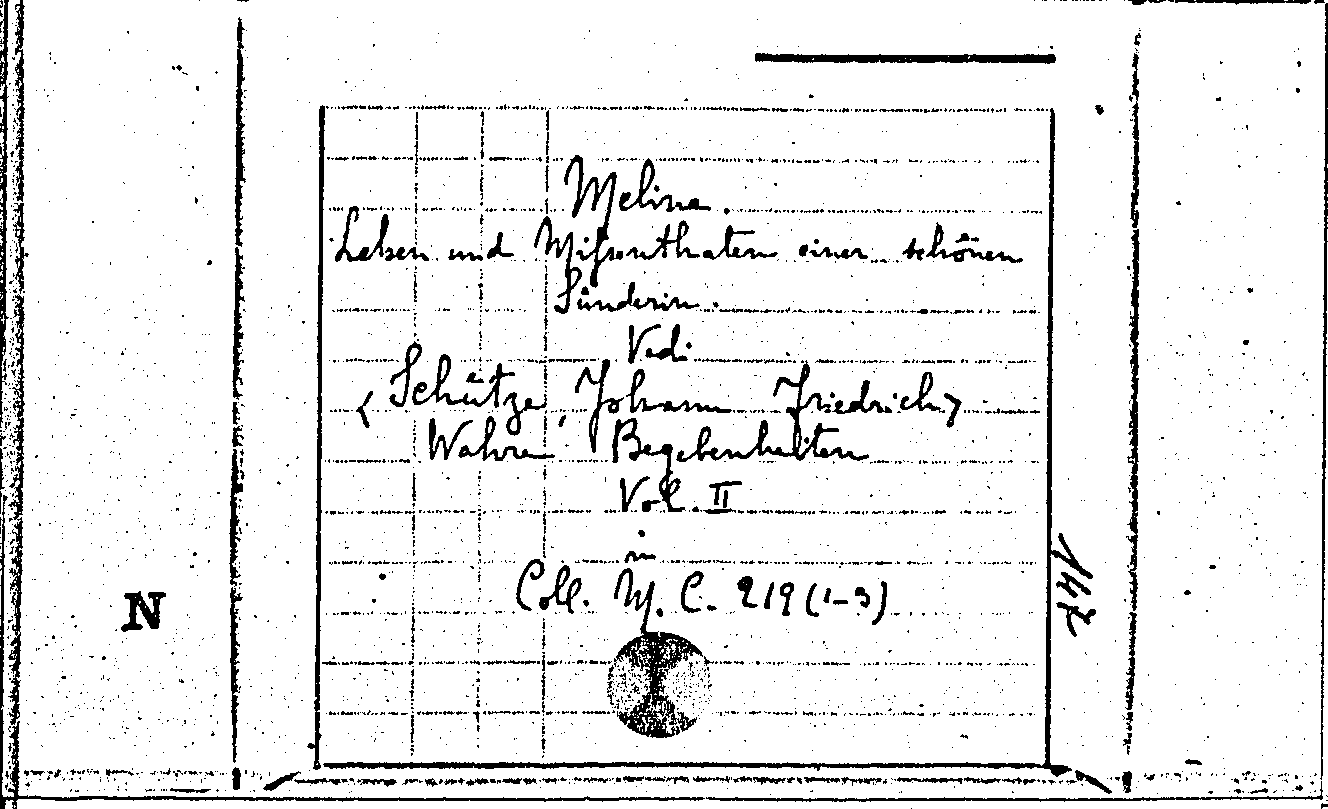 Melina.
Leben und Mißenthaten einer schönen
Sünderin.
Vedi
<Schütze, Johann Friedrich>
Wahre Begebenheiten
Vol. II
in
Coll. M. C. 219 (1-3)
N
147